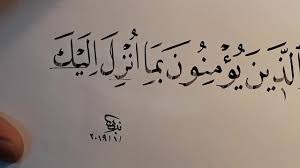 الَّذِينَ يُؤْمِنُونَ بِمَا أُنْزِلَ إِلَيْكَ
٢٠١٩/١/